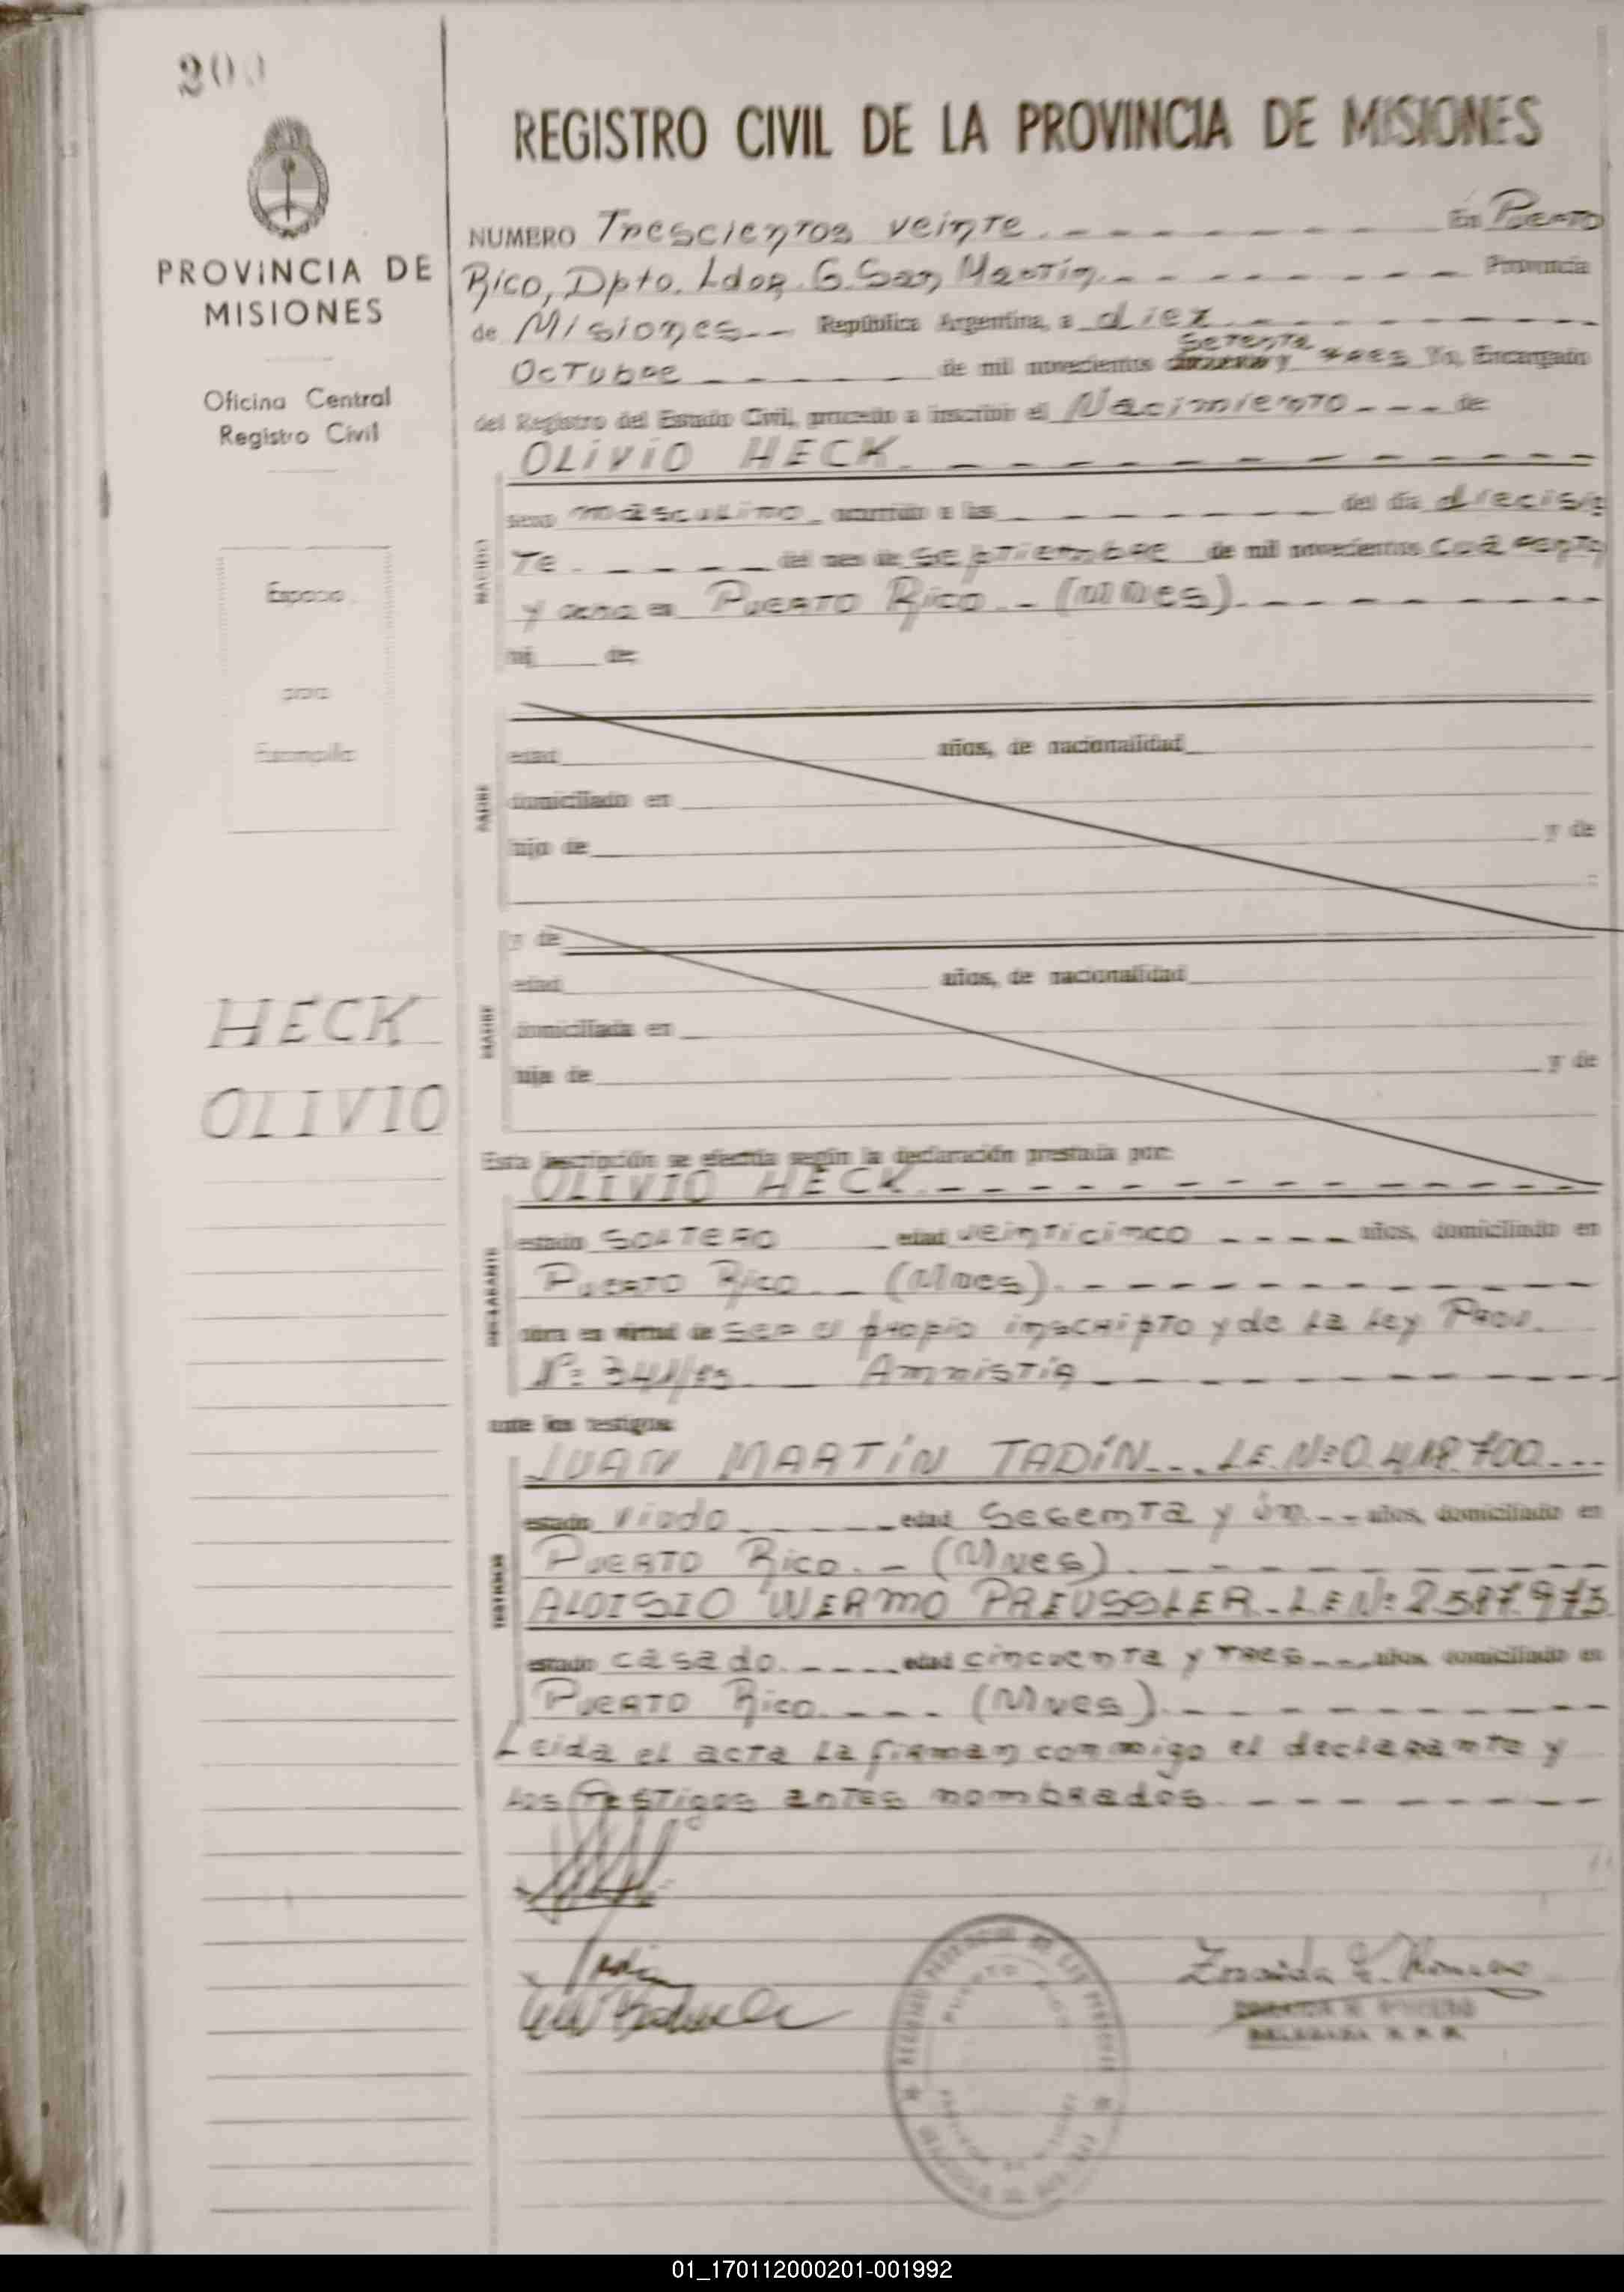 200
PROVINCIA DE
MISIONES
Oficina Central
Registro Civil
Espacio
para
Estampilla
HECK
OLIVIO
REGISTRO CIVIL DE LA PROVINCIA DE MISIONES
NUMERO Trescientos veinte. En Puerto
Rico, Dpto. Ldor. G. San Martín. Provincia
de Misiones República Argentina, a diez
Octubre de mil novecientos setenta y tres Yo, Encargado
del Registro del Estado Civil, procedo a inscribir el Nacimiento de
OLIVIO HECK.
NACIDO
sexo masculino ocurrido a las del día diecisie
te. del mes de septiembre de mil novecientos cuarenta
y ocho en Puerto Rico. - (Mnes).
hij de:
PADRE
edad años, de nacionalidad
domiciliado en
hijo de y de
MADRE
y de
edad años, de nacionalidad
domiciliada en
hija de y de
Esta inscripción se efectúa según la declaración prestada por:
OLIVIO HECK.
DECLARANTE
estado SOLTERO edad veinticinco años, domiciliado en
Puerto Rico. - (Mnes).
obra en virtud de ser el propio inscripto y de la Ley Prov.
Nº: Amnistía
ante los testigos:
JUAN MARTÍN TADÍN... LE.Nº:0.418.700...
TESTIGOS
estado viudo edad sesenta y ún años, domiciliado en
Puerto Rico. - (Mnes)
ALOISIO WERMO PREUSSLER. LE Nº: 2587.973
estado casado. edad cincuenta y tres años, domiciliado en
Puerto Rico. (Mnes).
Leida el acta la firman conmigo el declarante y
los testigos antes nombrados.
01_170112000201-001992